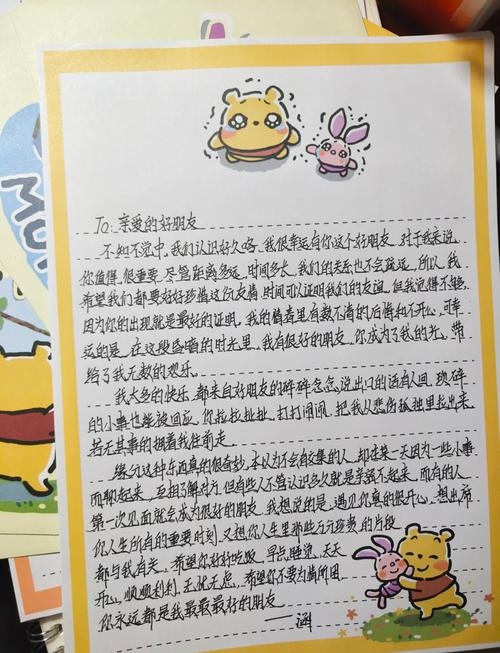 To: 亲爱的好朋友
不知不觉中,我们认识好久了,我很幸运有你这个好朋友,对于我来说,
你值得,很重要,尽管距离多远,时间多长,我们的关系也不会疏远,所以,我
希望我们都要好好珍惜这份友情,时间可以证明我们的友谊,但我觉得不够,
因为你的出现就是最好的证明,我的情绪里有数不清的后悔和不开心,可幸
运的是,在这段昏暗的时光里,我有很好的朋友,你成为了我的光,带
给了我无数的欢乐。
我太多的快乐,都来自好朋友的碎碎念念,说出口的话有人回,琐碎
的小事也能被回应,你拉拉扯扯,打打闹闹,把我从悲伤孤独里拉出来,
若无其事的拥着我往前走。
缘分这种东西真的很奇妙,本以为不会有交集的人,却在某一天因为一些小事
而聊起来,互相了解对方,但有些人不管认识多久就是亲密不起来,而有的人
第一次见面就会成为很好的朋友,我想说的是,遇见你真的很开心,想出席
你人生所有的重要时刻,又想你人生里那些万元班费的片段
都与我有关,希望你好好吃饭,早点睡觉,天天
开心,顺顺利利,无忧无虑,希望你不要为情所困,
你永远都是我最最最好的朋友
——涵
MO